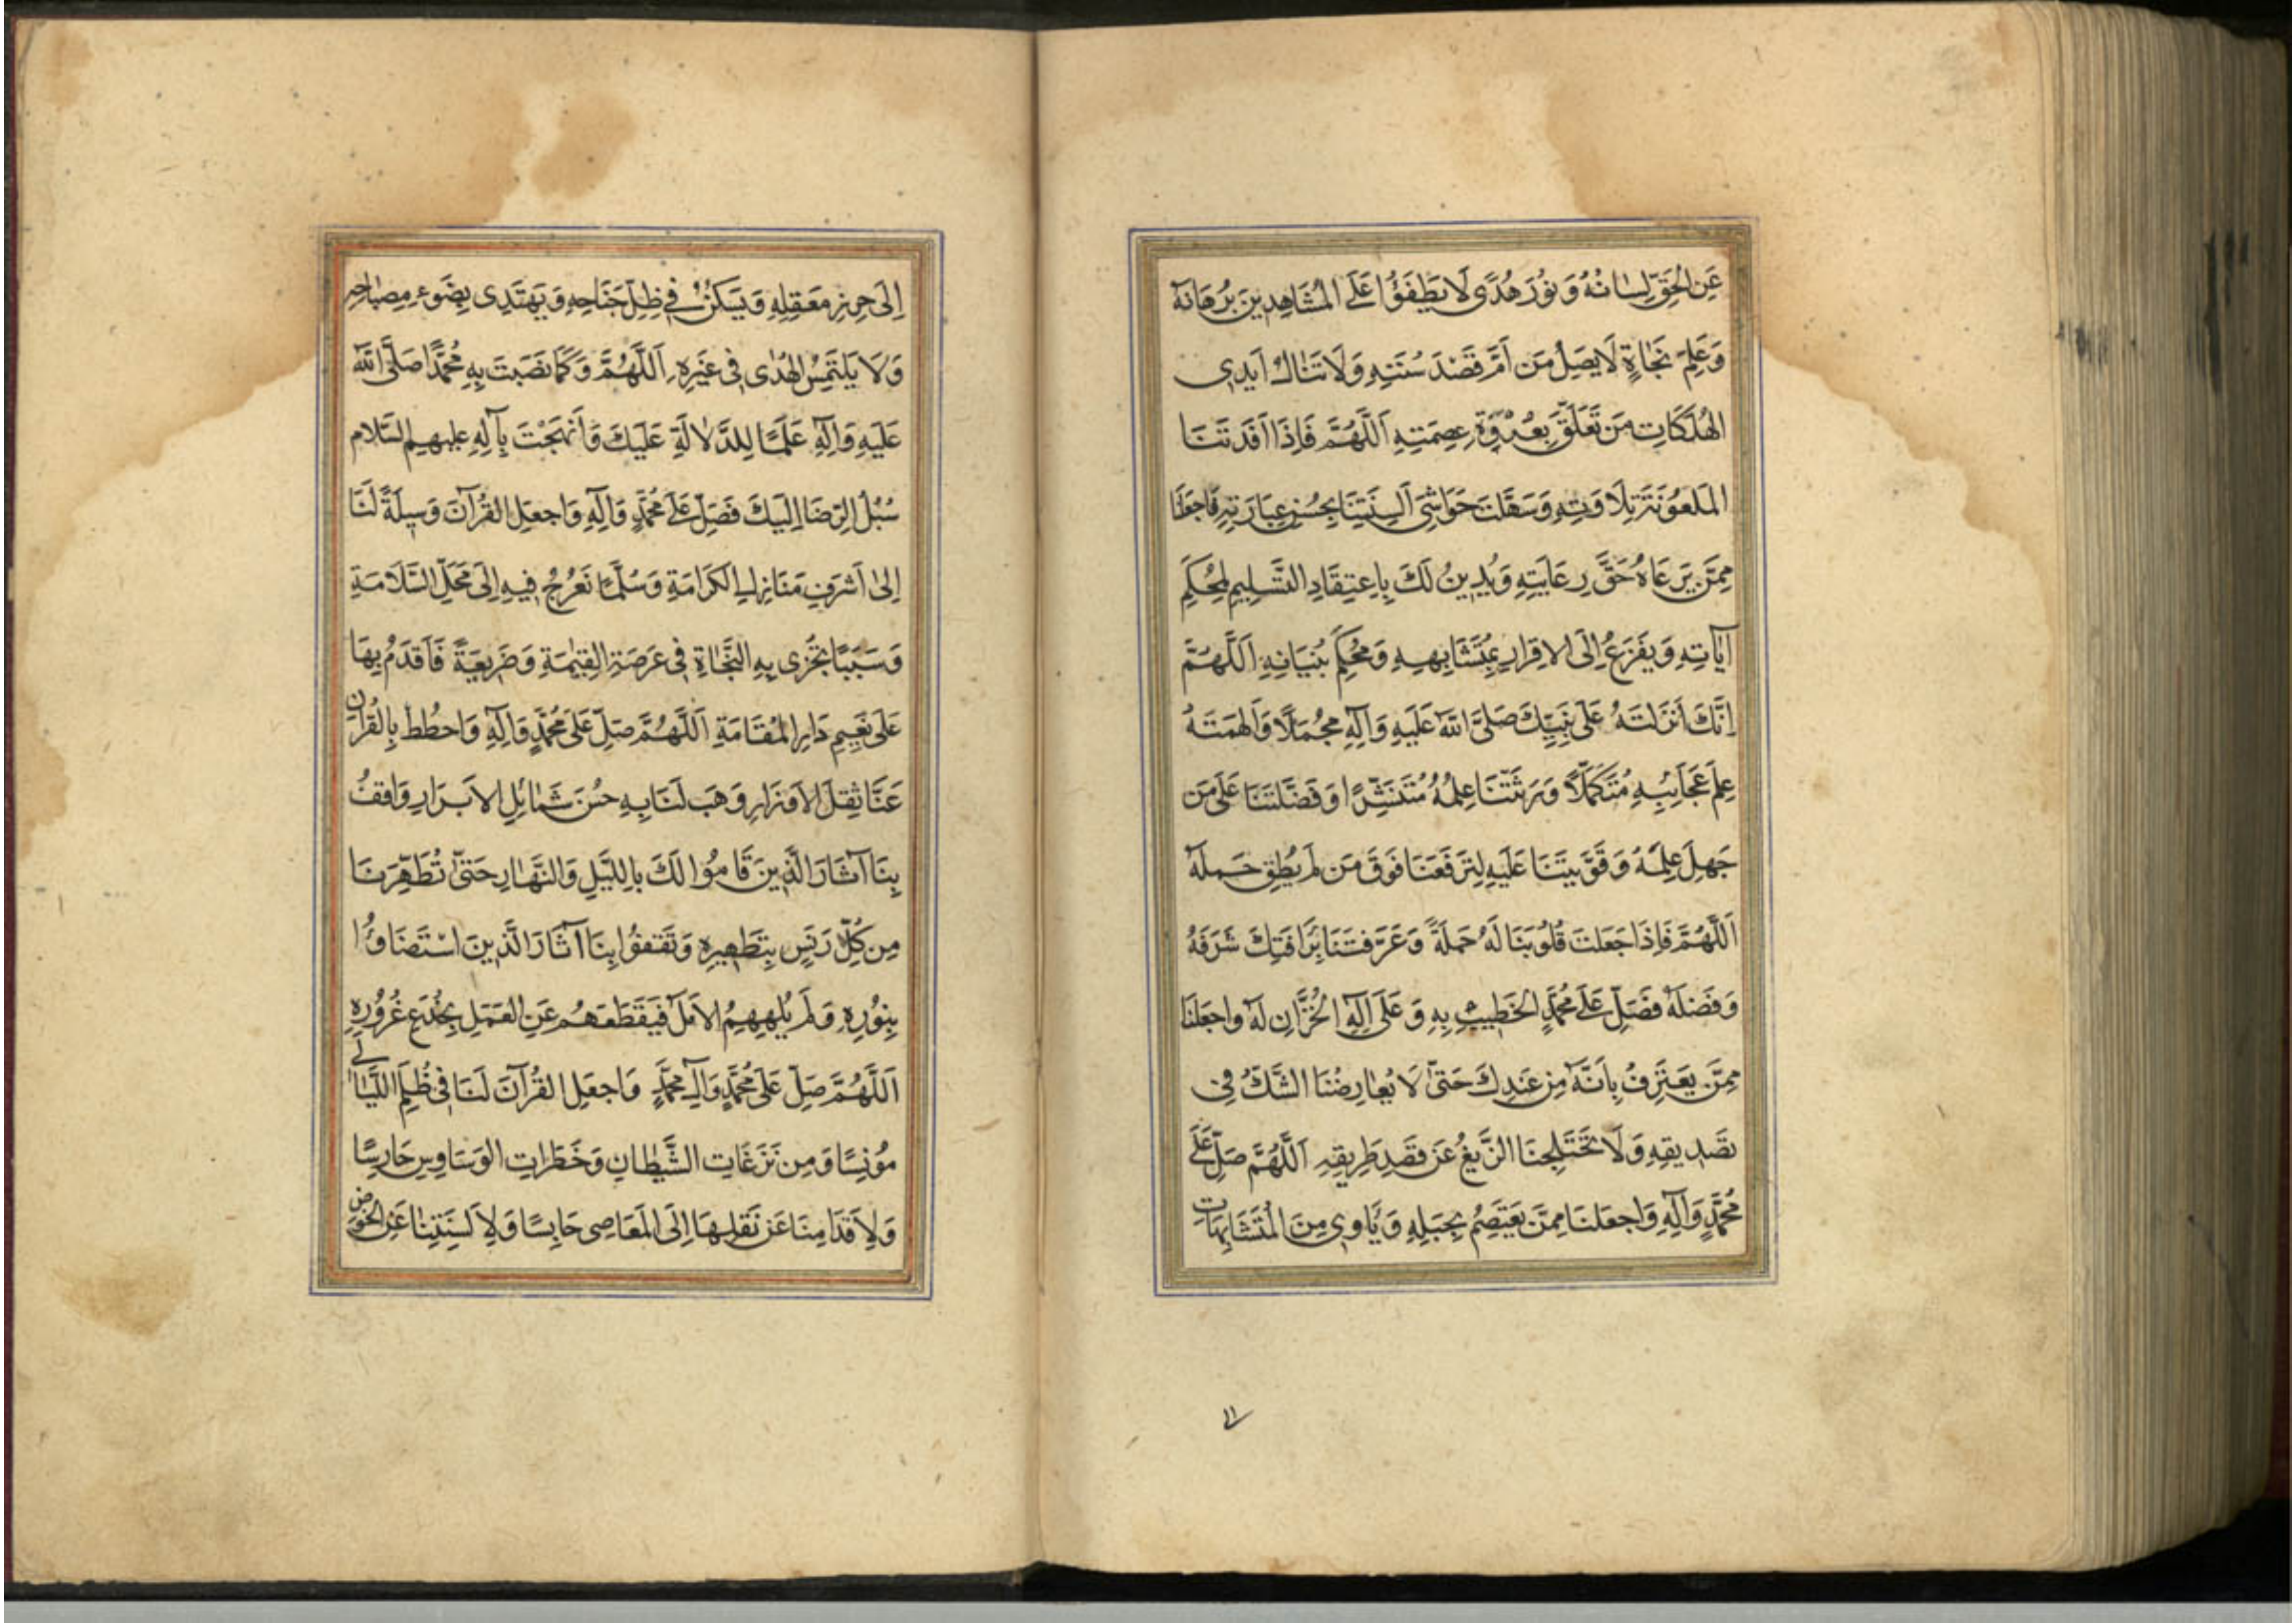 عَنِ الْحَقِّ لِسَانُهُ وَ نُورَ هُدًى لَا يَطْفَؤُا عَلَى الْمُشَاهِدِينَ بُرْهَانُهُ
وَ عَلَمَ نَجَاةٍ لَا يَصِلُ مَنْ أَمَّ قَصْدَ سُنَّتِهِ وَ لَا تَنَالُ أَيْدِي
الْهَلَكَاتِ مَنْ تَعَلَّقَ بِعُرْوَةِ عِصْمَتِهِ اَللَّهُمَّ فَإِذَا أَفَدْتَنَا
الْمَلعُونَةَ بِتِلَاوَتِهِ وَ سَهَّلْتَ حَوَاشِيَ أَلْسِنَتِنَا بِحُسْنِ عِبَارَتِهِ فَاجْعَلْنَا
مِمَّنْ يَرْعَاهُ حَقَّ رِعَايَتِهِ وَ يَدِينُ لَكَ بِاعْتِقَادِ التَّسْلِيمِ لِمُحْكَمِ
آيَاتِهِ وَ يَفْزَعُ إِلَى الْاِقْرَارِ بِمُتَشَابِهِهِ وَ مُحْكَمِ بُنْيَانِهِ اَللَّهُمَّ
إِنَّكَ أَنْزَلْتَهُ عَلَى نَبِيِّكَ صَلَّى اللهُ عَلَيْهِ وَ آلِهِ مُجْمَلًا وَ أَلْهَمْتَهُ
عِلْمَ عَجَائِبِهِ مُتَكَمِّلًا وَ وَرَّثْتَنَا عِلْمَهُ مُتَنَشِّرًا وَ فَضَّلْتَنَا عَلَى مَنْ
جَهِلَ عِلْمَهُ وَ قَوَّيْتَنَا عَلَيْهِ لِتَرْفَعَنَا فَوْقَ مَنْ لَمْ يُطِقْ حَمْلَهُ
اَللَّهُمَّ فَإِذَا جَعَلْتَ قُلُوبَنَا لَهُ حَمَلَةً وَ عَرَّفْتَنَا بِرَافَتِكَ شَرَفَهُ
وَ فَضْلَهُ فَصَلِّ عَلَى مُحَمَّدٍ الْخَطِيبِ بِهِ وَ عَلَى آلِهِ الْخُزَّانِ لَهُ وَاجْعَلْنَا
مِمَّنْ يَعْتَرِفُ بِأَنَّهُ مِنْ عِنْدِكَ حَتَّى لَا يُعَارِضُنَا الشَّكُّ فِي
تَصْدِيقِهِ وَ لَا تَخْتَلِجَنَا الزَّيْغُ عَنْ قَصْدِ طَرِيقِهِ اَللَّهُمَّ صَلِّ عَلَى
مُحَمَّدٍ وَ آلِهِ وَ اجْعَلْنَا مِمَّنْ يَعْتَصِمُ بِحَبْلِهِ وَ يَأْوِي مِنَ الْمُتَشَابِهَاتِ
إِلَى حِرْزِ مَعْقِلِهِ وَ يَسْكُنُ فِي ظِلِّ جَنَاحِهِ وَ يَهْتَدِي بِضَوْءِ مِصْبَاحِهِ
وَ لَا يَلْتَمِسُ الْهُدَى فِي غَيْرِهِ اَللَّهُمَّ وَ كَمَا نَصَبْتَ بِهِ مُحَمَّدًا صَلَّى اللهُ
عَلَيْهِ وَ آلِهِ عَلَمًا لِلدَّلَالَةِ عَلَيْكَ وَ أَنْهَجْتَ بِآلِهِ عَلَيْهِمُ السَّلَام
سُبُلَ الرِّضَا إِلَيْكَ فَصَلِّ عَلَى مُحَمَّدٍ وَ آلِهِ وَ اجْعَلِ الْقُرْآنَ وَسِيلَةً لَنَا
إِلَى أَشْرَفِ مَنَازِلِ الْكَرَامَةِ وَ سُلَّمًا نَعْرُجُ فِيهِ إِلَى مَحَلِّ السَّلَامَةِ
وَ سَبَبًا نُجْزَى بِهِ النَّجَاةَ فِي عَرْصَةِ الْقِيٰمَةِ وَ ذَرِيعَةً نَقْدَمُ بِهَا
عَلَى نَعِيمِ دَارِ الْمُقَامَةِ اَللَّهُمَّ صَلِّ عَلَى مُحَمَّدٍ وَ آلِهِ وَ احْطُطْ بِالْقُرْآنِ
عَنَّا ثِقْلَ الْأَوْزَارِ وَ هَبْ لَنَا بِهِ حُسْنَ شَمَائِلِ الْأَبْرَارِ وَ اقْفُ
بِنَا آثَارَ الَّذِينَ قَامُوا لَكَ بِاللَّيْلِ وَ النَّهَارِ حَتَّى تُطَهِّرَنَا
مِنْ كُلِّ دَنَسٍ بِتَطْهِيرِهِ وَ تَقْفُوا بِنَا آثَارَ الَّذِينَ اسْتَضَاؤُا
بِنُورِهِ وَ لَمْ يُلْهِهِمُ الْأَمَلُ فَيَقْطَعَهُمْ عَنِ الْعَمَلِ بِخُدَعِ غُرُورِهِ
اَللَّهُمَّ صَلِّ عَلَى مُحَمَّدٍ وَ آلِ مُحَمَّدٍ وَ اجْعَلِ الْقُرْآنَ لَنَا فِي ظُلَمِ اللَّيَالِي
مُونِسًا وَ مِنْ نَزَغَاتِ الشَّيْطَانِ وَ خَطَرَاتِ الْوَسَاوِسِ حَارِسًا
وَ لِأَقْدَامِنَا عَنْ نَقْلِهَا إِلَى الْمَعَاصِي حَابِسًا وَ لِأَلْسِنَتِنَا عَنِ الْخَوْضِ